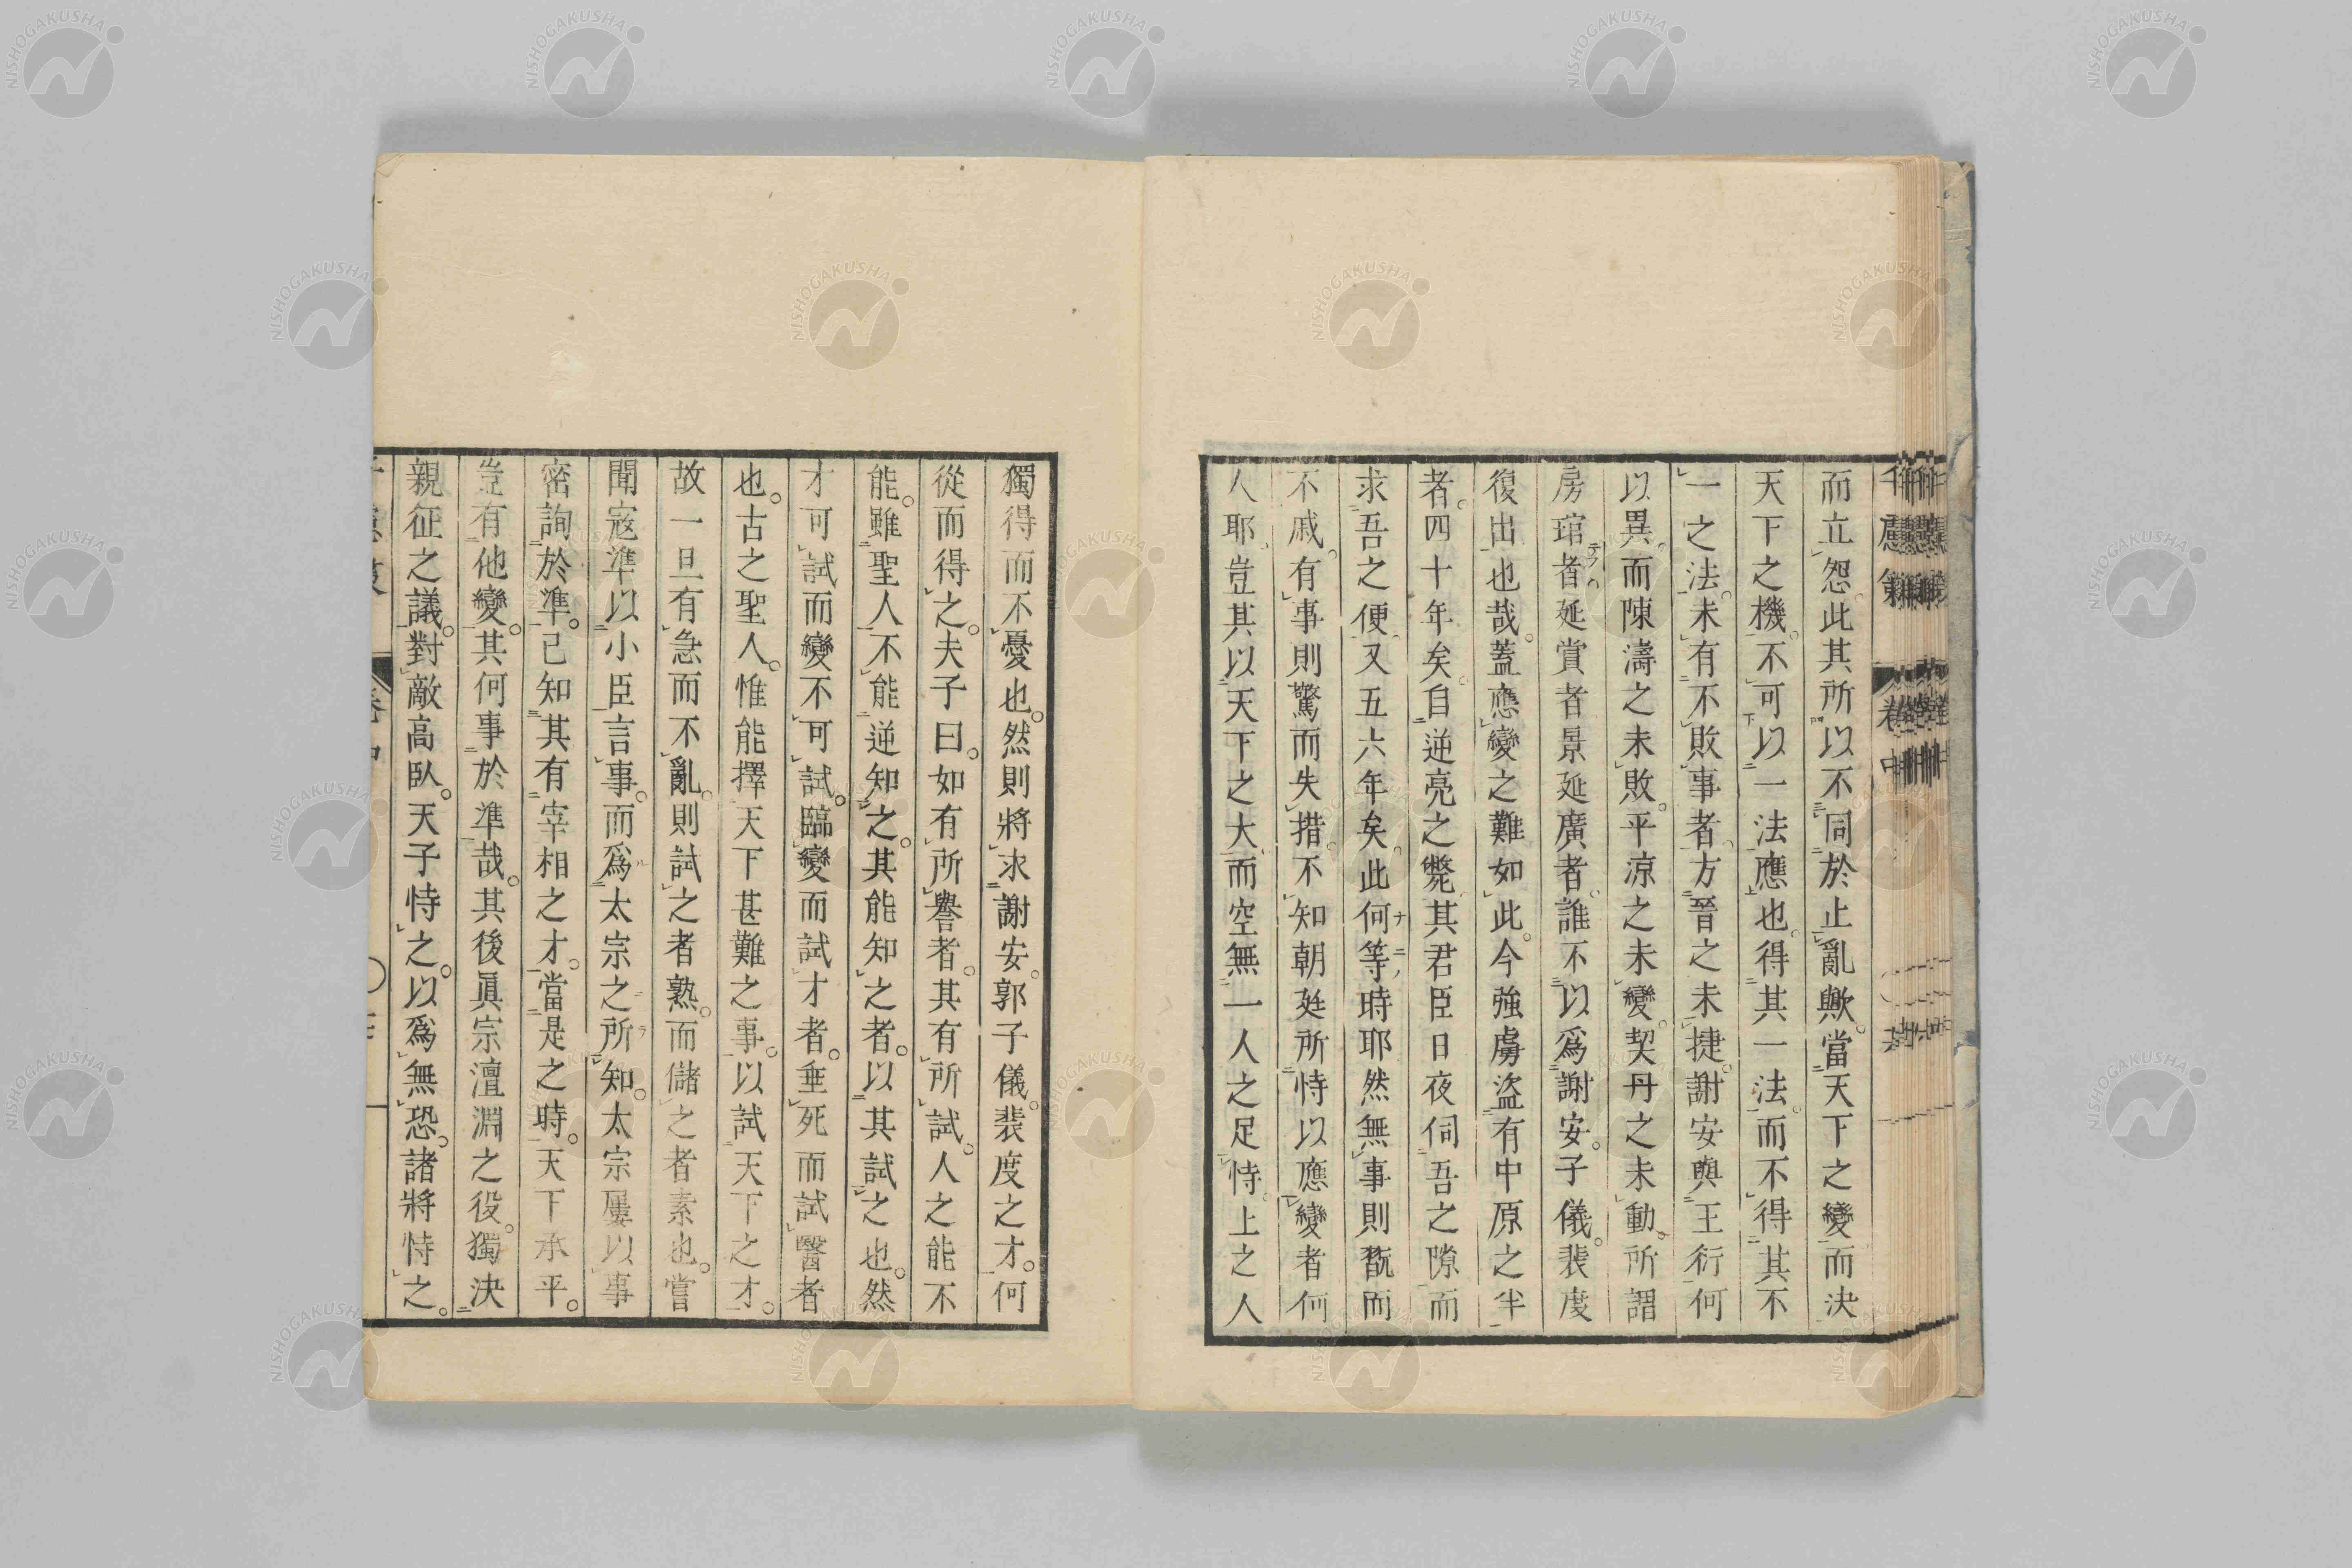 而立怨此其所以不同於止亂歟。當天下之變而決
天下之機。不可以一法應也。得其一法。而不得其不
一之法。未有不敗事者。方晉之未捷。謝安與王衍何
以異。而陳濤之未敗。平涼之未變。契丹之未動。所謂
房琯者。延賞者。景延廣者。誰不以爲謝安。子儀。裴度
復出也哉。蓋應變之難如此。今強虜盜有中原之半
者。四十年矣。自逆亮之斃。其君臣日夜伺吾之隙。而
求吾之便。又五六年矣。此何等時耶。然無事則翫而
不戚。有事則驚而失措。不知朝廷所恃以應變者何
人耶。豈其以天下之大。而空無一人之足恃。上之人
獨得而不憂也。然則將求謝安。郭子儀。裴度之才。何
從而得之。夫子曰。如有所譽者。其有所試。人之能不
能。雖聖人不能逆知之。其能知之者。以其試之也。然
才可試而變不可試。臨變而試才者。垂死而試醫者
也。古之聖人。惟能擇天下甚難之事。以試天下之才。
故一旦有急而不亂。則試之者熟。而儲之者素也。嘗
聞寇準以小臣言事。而爲太宗之所知。太宗屢以事
密詢於準。已知其有宰相之才。當是之時。天下承平。
豈有他變。其何事於準哉。其後眞宗澶淵之役。獨決
親征之議。對敵高臥。天子恃之。以爲無恐。諸將恃之。
千慮策
卷中
NISHOGAKUSHA